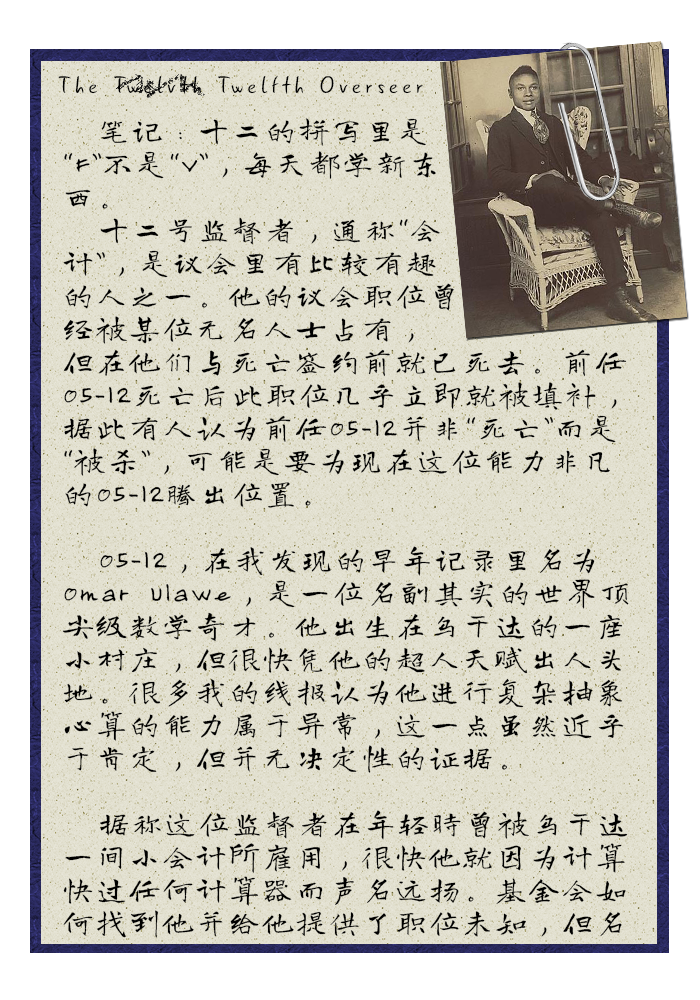 The Twelfth Overseer
笔记：十二的拼写里是
“F”不是“V”，每天都学新东
西。
十二号监督者，通称“会
计”，是议会里有比较有趣
的人之一。他的议会职位曾
经被某位无名人士占有，
但在他们与死亡签约前就已死去。前任
05-12死亡后此职位几乎立即就被填补，
据此有人认为前任05-12并非“死亡”而是
“被杀”，可能是要为现在这位能力非凡
的05-12腾出位置。
05-12，在我发现的早年记录里名为
Omar Ulawe，是一位名副其实的世界顶
尖级数学奇才。他出生在乌干达的一座
小村庄，但很快凭他的超人天赋出人头
地。很多我的线报认为他进行复杂抽象
心算的能力属于异常，这一点虽然近乎
于肯定，但并无决定性的证据。
据称这位监督者在年轻時曾被乌干达
一间小会计所雇用，很快他就因为计算
快过任何计算器而声名远扬。基金会如
何找到他并给他提供了职位未知，但名